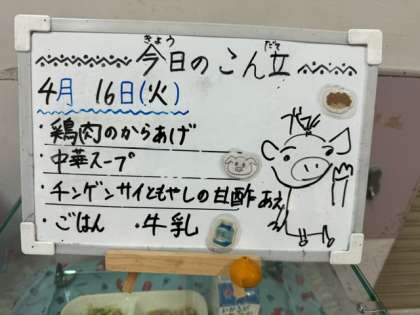 今日のこん立
きょう だて
4月 16日(火)
・鶏肉のからあげ
・中華スープ
・チンゲンサイともやしの甘酢あえ
・ごはん ・牛乳
ブブ